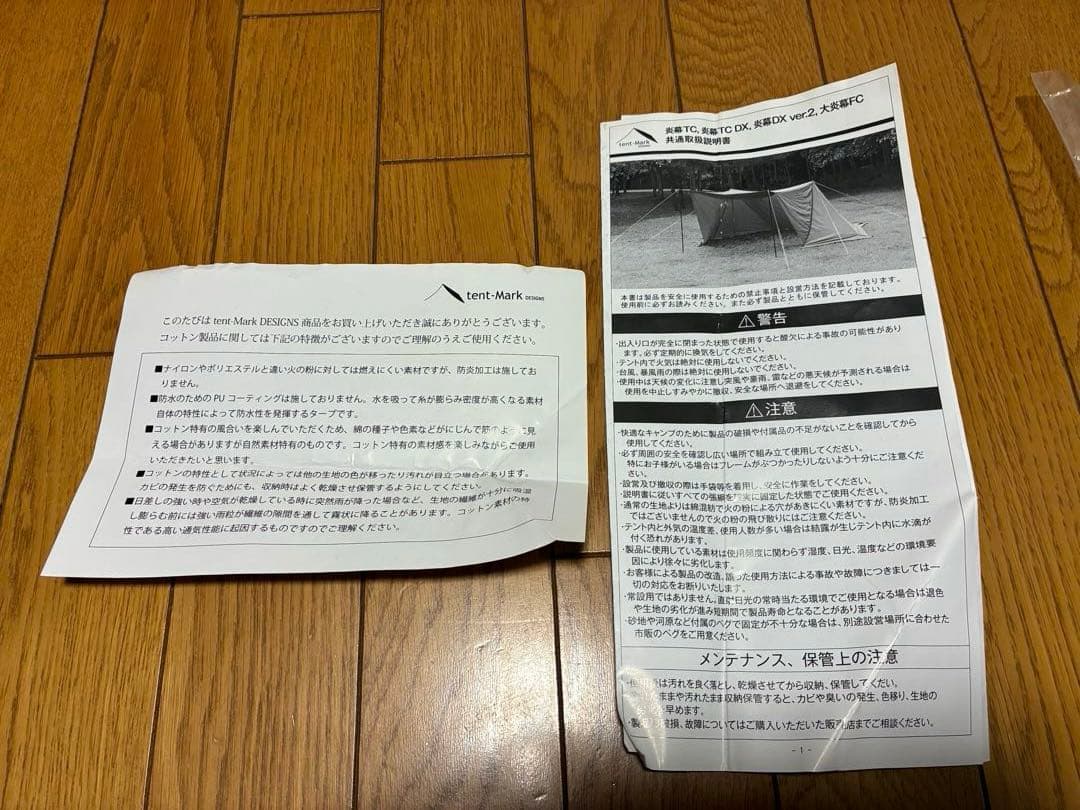 tent-Mark DESIGNS
このたびは tent-Mark DESIGNS 商品をお買い上げいただき誠にありがとうございます。
コットン製品に関しては下記の特徴がございますのでご理解のうえご使用ください。
■ナイロンやポリエステルと違い火の粉に対しては燃えにくい素材ですが、防炎加工は施してお
りません。
■防水のための PU コーティングは施しておりません。水を吸って糸が膨らみ密度が高くなる素材
自体の特性によって防水性を発揮するタープです。
■コットン特有の風合いを楽しんでいただくため、綿の種子や色素などがにじんで筋のように見
える場合がありますが自然素材特有のものです。コットン特有の素材感を楽しみながらご使用
いただきたいと思います。
■コットンの特性として状況によっては他の生地の色が移ったり汚れが目立つ場合があります。
カビの発生を防ぐためにも、収納時はよく乾燥させ保管するようにしてください。
■日差しの強い時や空気が乾燥している時に突然雨が降った場合など、生地の繊維が十分に吸湿
し膨らむ前には強い雨粒が繊維の隙間を通して霧状に降ることがあります。コットン素材の特
性である高い通気性能に起因するものですのでご理解ください。
tent-Mark DESIGNS
炎幕TC, 炎幕TC DX, 炎幕DX ver.2, 大炎幕FC
共通取扱説明書
本書は製品を安全に使用するための禁止事項と設営方法を記載しております。
使用前に必ずお読みください。また必ず製品とともに保管してください。
⚠警告
・出入り口が完全に閉まった状態で使用すると酸欠による事故の可能性があり
ます。必ず定期的に換気をしてください。
・テント内で火気は絶対に使用しないでください。
・台風、暴風雨の際は絶対に使用しないでください。
・使用中は天候の変化に注意し突風や豪雨、雷などの悪天候が予測される場合は
使用を中止しすみやかに撤収、安全な場所へ退避をしてください。
⚠注意
・快適なキャンプのために製品の破損や付属品の不足がないことを確認してから
使用してください。
・必ず周囲の安全を確認し広い場所で組み立て使用してください。
特にお子様がいる場合はフレームがぶつかったりしないよう十分にご注意くだ
さい。
・設営及び撤収の際は手袋等を着用し、安全に作業をしてください。
・説明書に従いすべての張綱を確実に固定した状態でご使用ください。
・通常の生地よりは綿混紡で火の粉による穴があきにくい素材ですが、防炎加工
ではございませんので火の粉の飛び散りにはご注意ください。
・テント内と外気の温度差、使用人数が多い場合は結露が生じテント内に水滴が
付く恐れがあります。
・製品に使用している素材は使用頻度に関わらず湿度、日光、温度などの環境要
因により徐々に劣化します。
・お客様による製品の改造、誤った使用方法による事故や故障につきましては一
切の対応をお断りいたします。
・常設用ではありません。直射日光の常時当たる環境でご使用となる場合は退色
や生地の劣化が進み短期間で製品寿命となることがあります。
・砂地や河原など付属のペグで固定が不十分な場合は、別途設営場所に合わせた
市販のペグをご用意ください。
メンテナンス、保管上の注意
は汚れを良く落とし、乾燥させてから収納、保管してください。
ままや汚れたまま収納保管すると、カビや臭いの発生、色移り、生地の
を早めます。
・製品の破損、故障についてはご購入いただいた販売店までご相談ください。
- 1 -